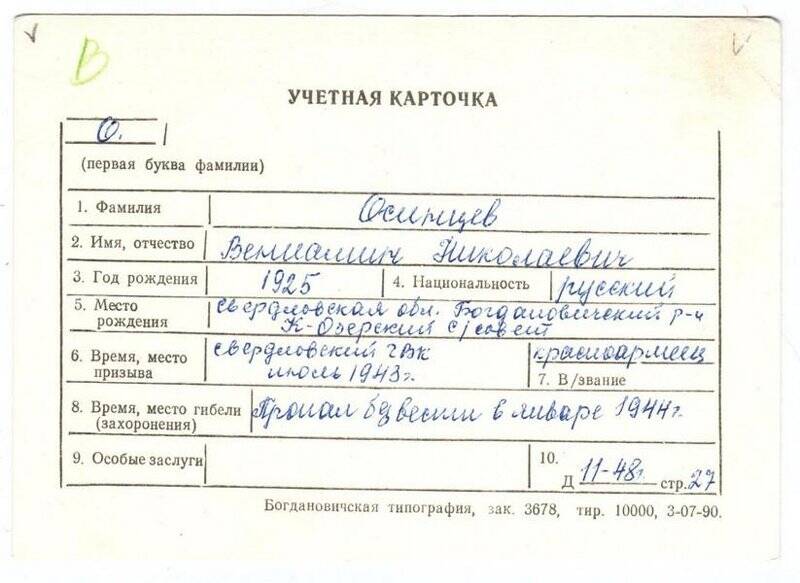 В
УЧЕТНАЯ КАРТОЧКА
О.
(первая буква фамилии)
1. Фамилия Осинцев
2. Имя, отчество Вениамин Николаевич
3. Год рождения 1925 4. Национальность русский
5. Место рождения свердловская обл. Богдановический р-н
К-Озерский с/совет
6. Время, место призыва свердловский ГВК
июль 1943г.
красноармеец
7. В/звание
8. Время, место гибели (захоронения) Пропал безвести в январе 1944г.
9. Особые заслуги
10.
Д 11-48г. стр. 27
Богдановичская типография, зак. 3678, тир. 10000, 3-07-90.